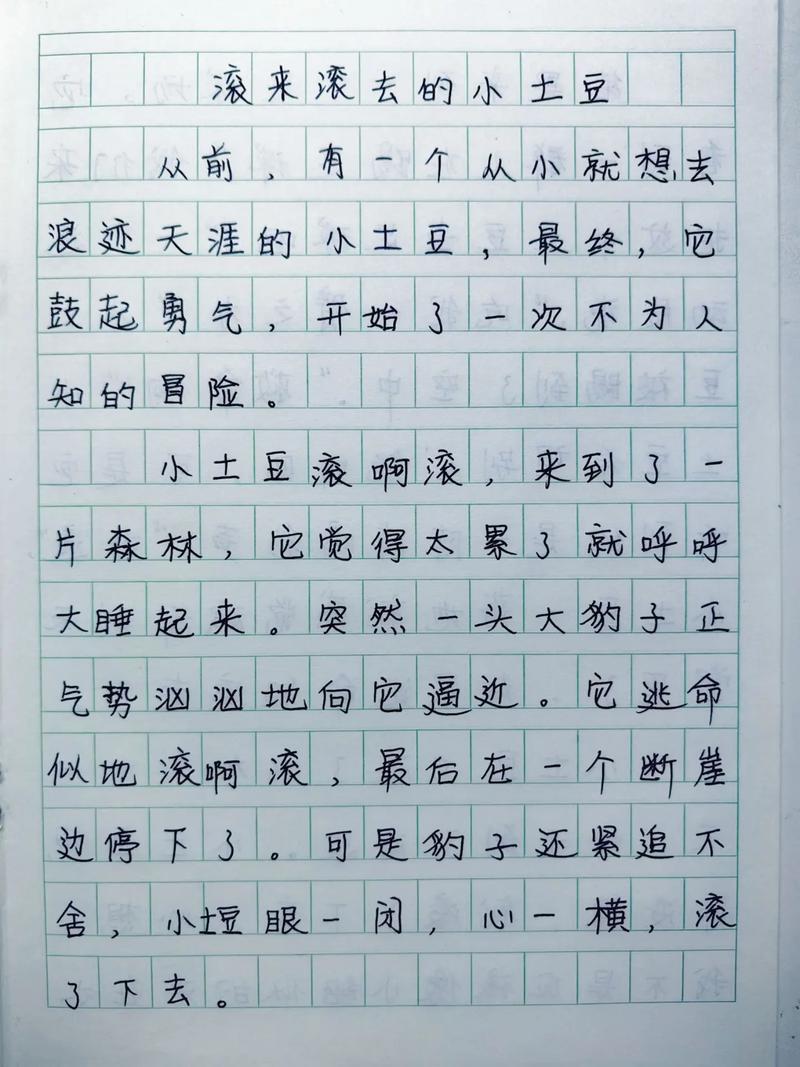 滚来滚去的小土豆
从前，有一个从小就想去
浪迹天涯的小土豆，最终，它
鼓起勇气，开始了一次不为人
知的冒险。
小土豆滚啊滚，来到了一
片森林，它觉得太累了就呼呼
大睡起来。突然一头大豹子正
气势汹汹地向它逼近。它逃命
似地滚啊滚，最后在一个断崖
边停下了。可是豹子还紧追不
舍，小土豆眼一闭，心一横，滚
了下去。